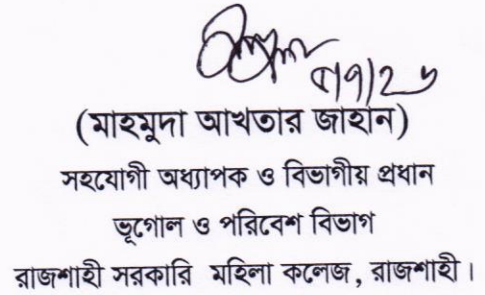 ৫/৭/২৬
(মাহমুদা আখতার জাহান)
সহযোগী অধ্যাপক ও বিভাগীয় প্রধান
ভূগোল ও পরিবেশ বিভাগ
রাজশাহী সরকারি মহিলা কলেজ, রাজশাহী।